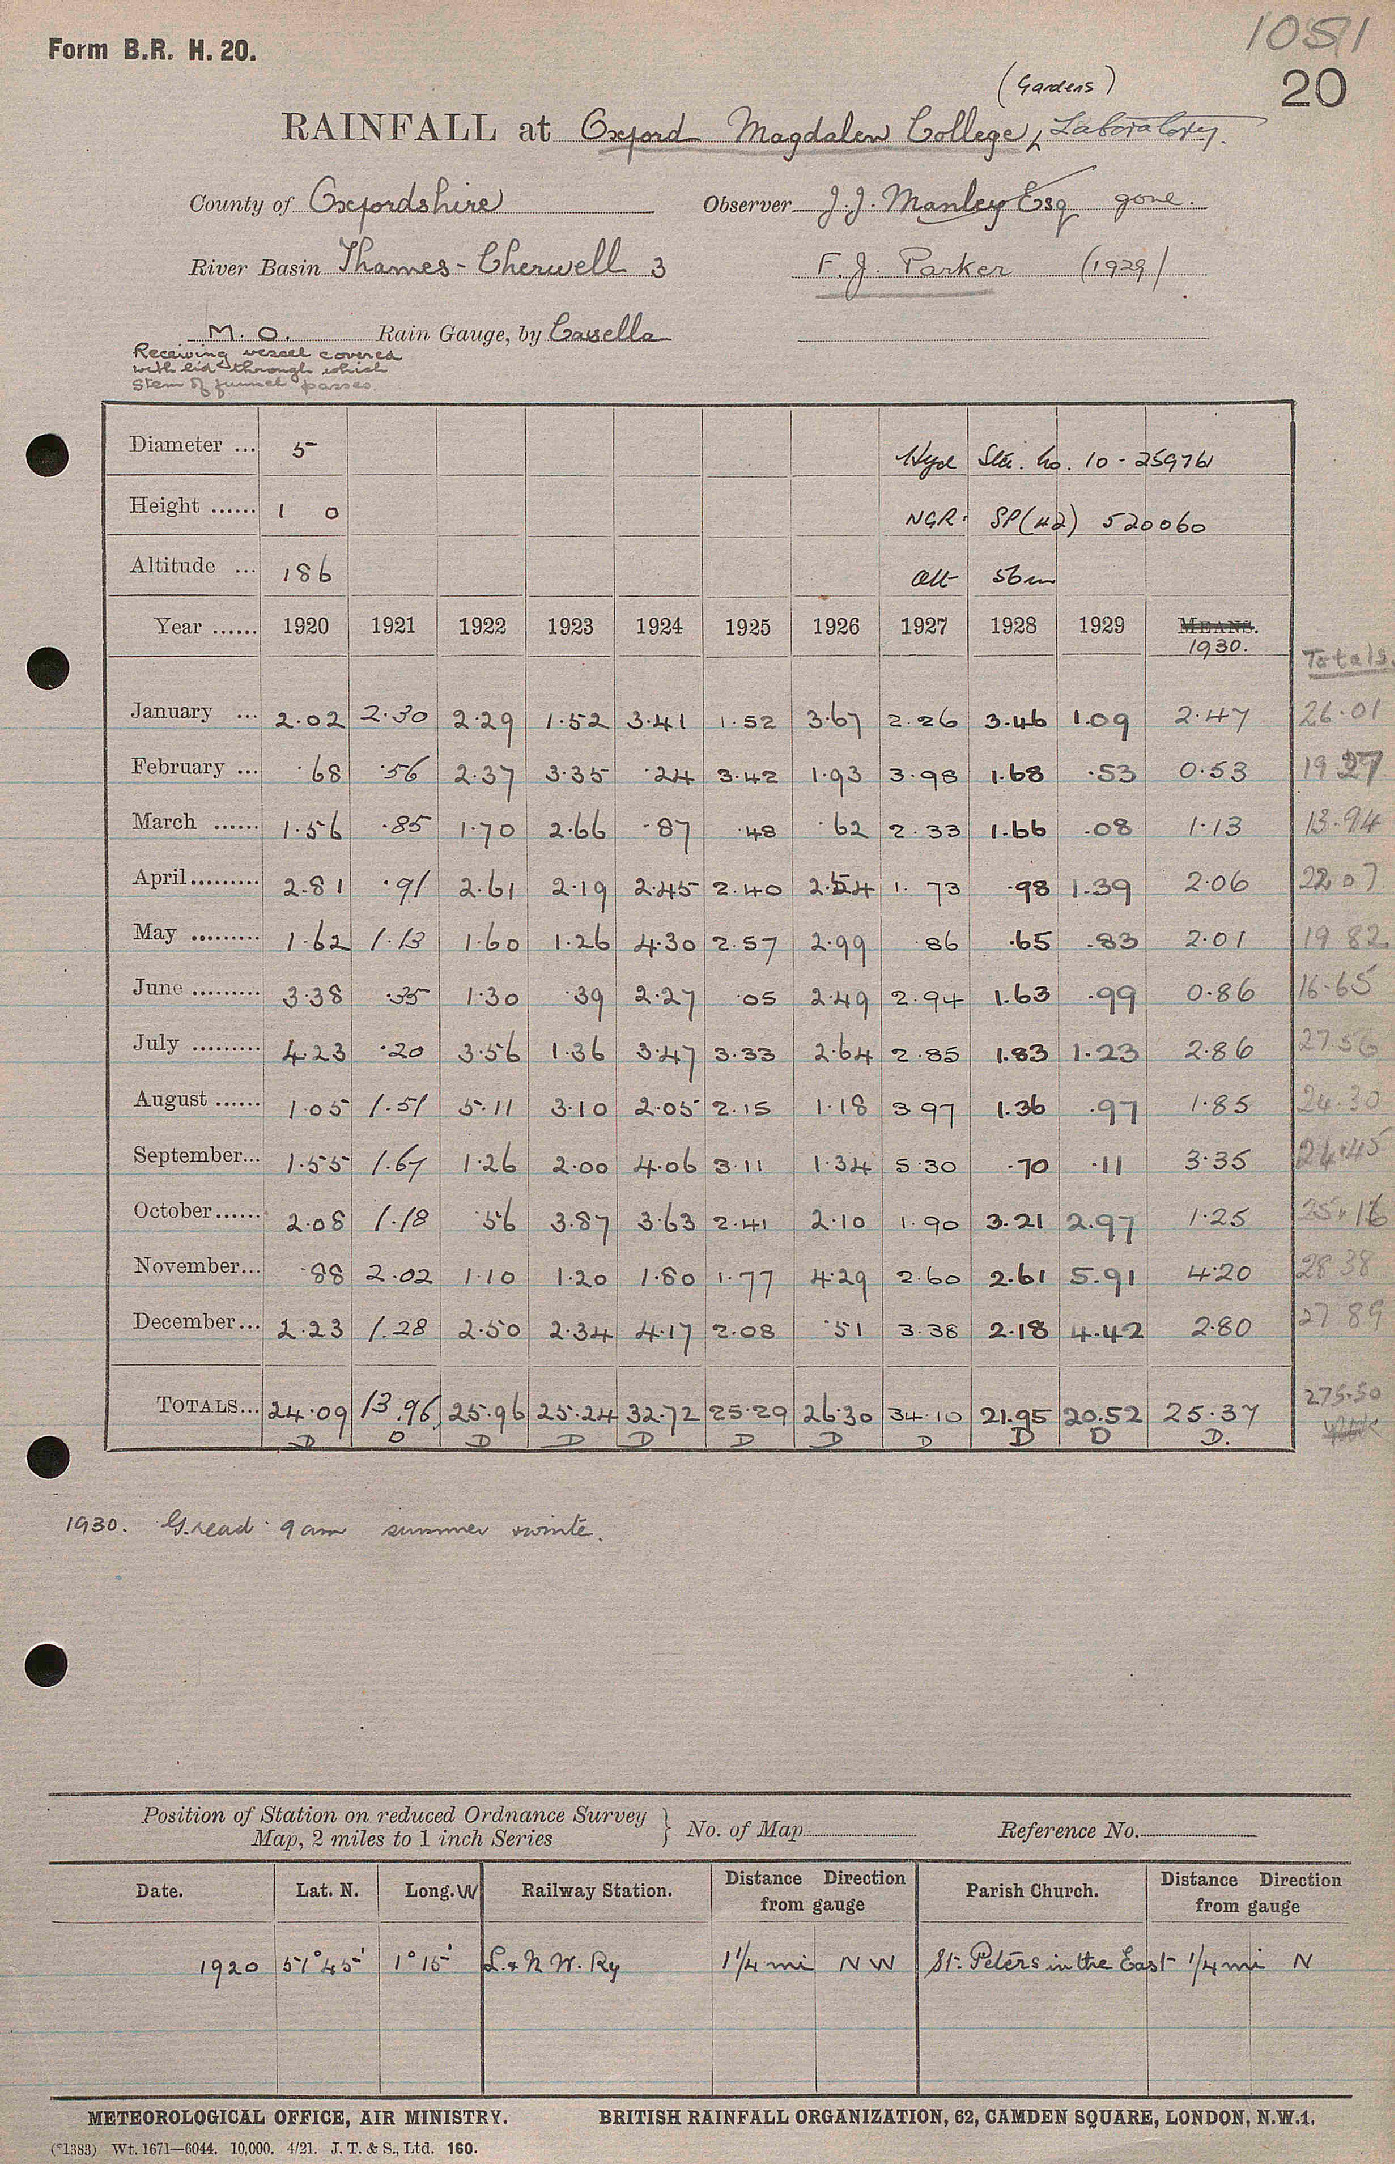 1051
Form B.R. H. 20.
20
(Gardens)
RAINFALL at Oxford Magdalen College, Laboratory.
County of Oxfordshire Observer J.J. Manley Esq gone.
River Basin Thames - Cherwell 3 F. J. Parker (1929)
M. O. Rain Gauge, by Casella
Receiving vessel covered
with lid through which
stem of funnel passes.
Diameter ... 5 Hyd Sta. No. 10 - 259761
Height ...... 1 0 NGR: SP(42) 520060
Altitude ... 186 alt 56m
Year ...... 1920 1921 1922 1923 1924 1925 1926 1927 1928 1929 MEANS.
1930. Totals.
January ... 2.02 2.30 2.29 1.52 3.41 1.52 3.67 2.26 3.46 1.09 2.47 26.01
February ... .68 .56 2.37 3.35 .24 3.42 1.93 3.98 1.68 .53 0.53 19 27
March ...... 1.56 .85 1.70 2.66 .87 .48 .62 2.33 1.66 .08 1.13 13.94
April ......... 2.81 .91 2.61 2.19 2.45 2.40 2.54 1.73 .98 1.39 2.06 22 07
May ......... 1.62 1.13 1.60 1.26 4.30 2.57 2.99 .86 .65 .83 2.01 19 82
June ......... 3.38 .35 1.30 .39 2.27 .05 2.49 2.94 1.63 .99 0.86 16.65
July ......... 4.23 .20 3.56 1.36 3.47 3.33 2.64 2.85 1.83 1.23 2.86 27.56
August ...... 1.05 1.51 5.11 3.10 2.05 2.15 1.18 3.97 1.36 .97 1.85 24.30
September... 1.55 1.67 1.26 2.00 4.06 3.11 1.34 5.30 .70 .11 3.35 24.45
October...... 2.08 1.18 .56 3.87 3.63 2.41 2.10 1.90 3.21 2.97 1.25 25.16
November... .88 2.02 1.10 1.20 1.80 1.77 4.29 2.60 2.61 5.91 4.20 28 38
December... 2.23 1.28 2.50 2.34 4.17 2.08 .51 3.38 2.18 4.42 2.80 27 89
TOTALS... 24.09 13.96 25.96 25.24 32.72 25.29 26.30 34.10 21.95 20.52 25.37 275.50
D D D D D D D D D D D.
1930. G. read 9 am summer winte.
Position of Station on reduced Ordnance Survey
Map, 2 miles to 1 inch Series } No. of Map Reference No.
Date. Lat. N. Long. W Railway Station. Distance from gauge Direction Parish Church. Distance from gauge Direction
1920 51°45' 1°15' L. & N. W. Ry 1 1/4 mi N W St. Peters in the East 1/4 mi N
METEOROLOGICAL OFFICE, AIR MINISTRY. BRITISH RAINFALL ORGANIZATION, 62, CAMDEN SQUARE, LONDON, N.W.1.
(*1383) Wt. 1671—6044. 10,000. 4/21. J. T. & S., Ltd. 160.